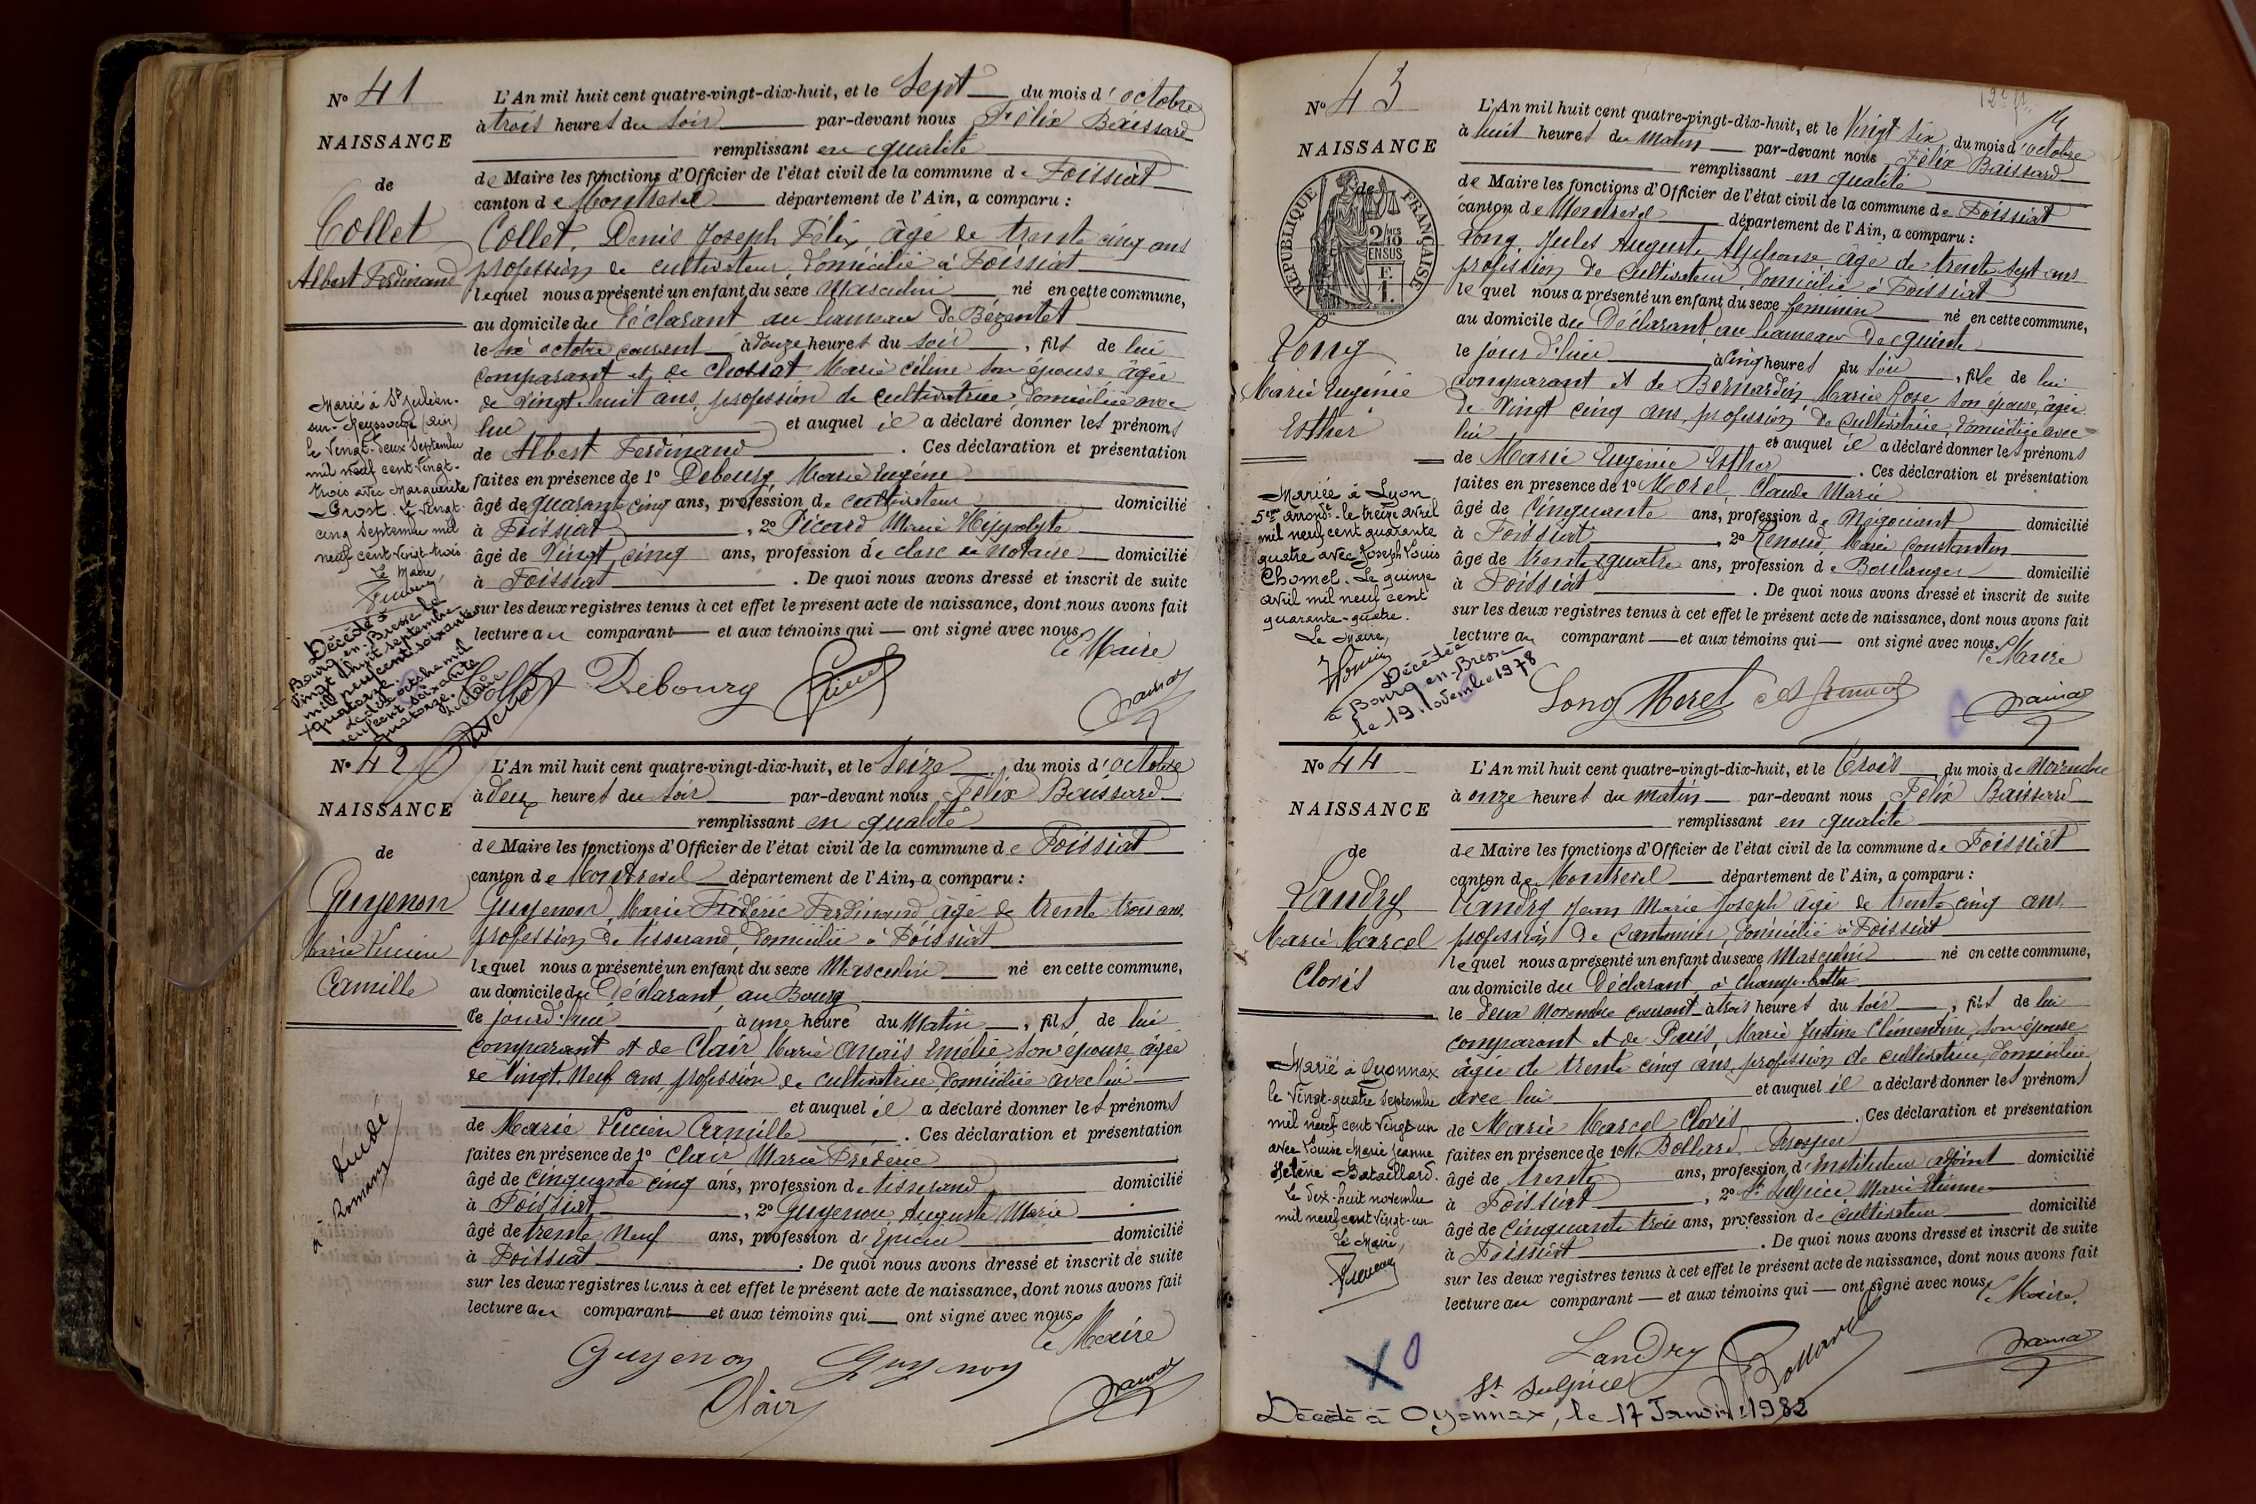 N° 41
NAISSANCE
de
Collet
Albert Ferdinand
L'An mil huit cent quatre-vingt-dix-huit, et le Sept du mois d'octobre
à trois heures du soir par-devant nous Félix Baissard
remplissant en qualité
de Maire les fonctions d'Officier de l'état civil de la commune de Foissiat
canton de Montrevel département de l'Ain, a comparu :
Collet, Denis Joseph Félix, âgé de trente cinq ans
profession de cultivateur, domicilié à Foissiat
lequel nous a présenté un enfant du sexe Masculin né en cette commune,
au domicile du Déclarant au hameau de Bézentet
le six octobre courant à onze heures du soir, fils de lui
comparant et de Chossat Marie Céline son épouse âgée
de vingt huit ans, profession de cultivatrice, domiciliée avec
lui et auquel il a déclaré donner les prénoms
de Albert Ferdinand. Ces déclaration et présentation
faites en présence de 1° Debourg, Marie Eugène
âgé de quarante cinq ans, profession de cultivateur domicilié
à Foissiat, 2° Picard Marie Hippolyte
âgé de vingt cinq ans, profession de clerc de Notaire domicilié
à Foissiat. De quoi nous avons dressé et inscrit de suite
sur les deux registres tenus à cet effet le présent acte de naissance, dont nous avons fait
lecture au comparant et aux témoins qui ont signé avec nous.
Le Maire
Collet Debourg
Marié à St Julien-
sur-Reyssouze (Ain)
le vingt-deux septembre
mil neuf cent vingt-
trois avec Marguerite
Prost. Le vingt-
cinq septembre mil
neuf cent vingt-trois.
Le Maire,
Décédé à
Bourg-en-Bresse le
vingt huit septembre
mil neuf cent soixante
quatorze.
Le dix octobre mil
neuf cent soixante
quatorze.
Le Maire
N° 42
NAISSANCE
de
Guyenon
Marie Lucien
Camille
L'An mil huit cent quatre-vingt-dix-huit, et le Seize du mois d'octobre
à deux heures du soir par-devant nous Félix Baissard
remplissant en qualité
de Maire les fonctions d'Officier de l'état civil de la commune de Foissiat
canton de Montrevel département de l'Ain, a comparu :
Guyenon, Marie Frédéric Ferdinand âgé de trente trois ans
profession de tisserand, domicilié à Foissiat
lequel nous a présenté un enfant du sexe Masculin né en cette commune,
au domicile du Déclarant, au Bourg
le jourd'hui à une heure du matin, fils de lui
comparant et de Clair Marie Anaïs Emélie son épouse, âgée
de vingt-neuf ans profession de cultivatrice, domiciliée avec lui
et auquel il a déclaré donner les prénoms
de Marie Lucien Camille. Ces déclaration et présentation
faites en présence de 1° Clair Marie Fréderic
âgé de cinquante cinq ans, profession de tisserand domicilié
à Foissiat, 2° Guyenon Auguste Marie
âgé de trente neuf ans, profession d'épicier domicilié
à Foissiat. De quoi nous avons dressé et inscrit de suite
sur les deux registres tenus à cet effet le présent acte de naissance, dont nous avons fait
lecture au comparant et aux témoins qui ont signé avec nous.
Le Maire
Guyenon Guyenon
Clair
à Romans
N° 43
NAISSANCE
de
RÉPUBLIQUE FRANÇAISE
2/10
EN SUS
Long
Marie Eugénie
Esther
L'An mil huit cent quatre-vingt-dix-huit, et le Vingt six du mois d'octobre
à huit heures du matin par-devant nous Félix Baissard
remplissant en qualité
de Maire les fonctions d'Officier de l'état civil de la commune de Foissiat
canton de Montrevel département de l'Ain, a comparu :
Long, Jules Auguste Alphonse âgé de trente sept ans
profession de cultivateur, domicilié à Foissiat
lequel nous a présenté un enfant du sexe féminin né en cette commune,
au domicile du Déclarant, au hameau de
le jour d'hier à cinq heures du soir, fille de lui
comparant et de Bernardin Marie Rose son épouse, âgée
de vingt cinq ans, profession de cultivatrice, domiciliée avec
lui et auquel il a déclaré donner les prénoms
de Marie Eugénie Esther. Ces déclaration et présentation
faites en présence de 1° Morel, Claude Marie
âgé de cinquante ans, profession de Négociant domicilié
à Foissiat, 2° Renoud, Marie Constantin
âgé de trente quatre ans, profession de Boulanger domicilié
à Foissiat. De quoi nous avons dressé et inscrit de suite
sur les deux registres tenus à cet effet le présent acte de naissance, dont nous avons fait
lecture au comparant et aux témoins qui ont signé avec nous.
Le Maire
Long Morel
Mariée à Lyon
5eme arrondt. le treize avril
mil neuf cent quarante
quatre avec Joseph Louis
Chomel. Le quinze
avril mil neuf cent
quarante-quatre.
Le Maire,
Décédée
à Bourg-en-Bresse
le 19 novembre 1978
N° 44
NAISSANCE
de
Landry
Marie Marcel
Clovis
L'An mil huit cent quatre-vingt-dix-huit, et le Trois du mois de Novembre
à onze heures du matin par-devant nous Félix Baissard
remplissant en qualité
de Maire les fonctions d'Officier de l'état civil de la commune de Foissiat
canton de Montrevel département de l'Ain, a comparu :
Landry Jean Marie Joseph âgé de trente cinq ans
profession de cantonnier, domicilié à Foissiat
lequel nous a présenté un enfant du sexe Masculin né en cette commune,
au domicile du Déclarant, à
le deux Novembre courant à trois heures du soir, fils de lui
comparant et de Paris, Marie Justine Clémentine, son épouse
âgée de trente cinq ans, profession de cultivatrice, domiciliée
avec lui et auquel il a déclaré donner les prénoms
de Marie Marcel Clovis. Ces déclaration et présentation
faites en présence de 1° M. Bollard, Prosper
âgé de trente ans, profession d'Instituteur adjoint domicilié
à Foissiat, 2° St Sulpice Marie Etienne
âgé de cinquante trois ans, profession de cultivateur domicilié
à Foissiat. De quoi nous avons dressé et inscrit de suite
sur les deux registres tenus à cet effet le présent acte de naissance, dont nous avons fait
lecture au comparant et aux témoins qui ont signé avec nous.
Le Maire.
Landry
St Sulpice Bollard
Marié à Oyonnax
le vingt-quatre septembre
mil neuf cent vingt-un
avec Louise Marie Jeanne
Hélène Bataillard.
Le dix-huit novembre
mil neuf cent vingt-un
Le Maire,
Décédé à Oyonnax, le 17 Janvier 1982